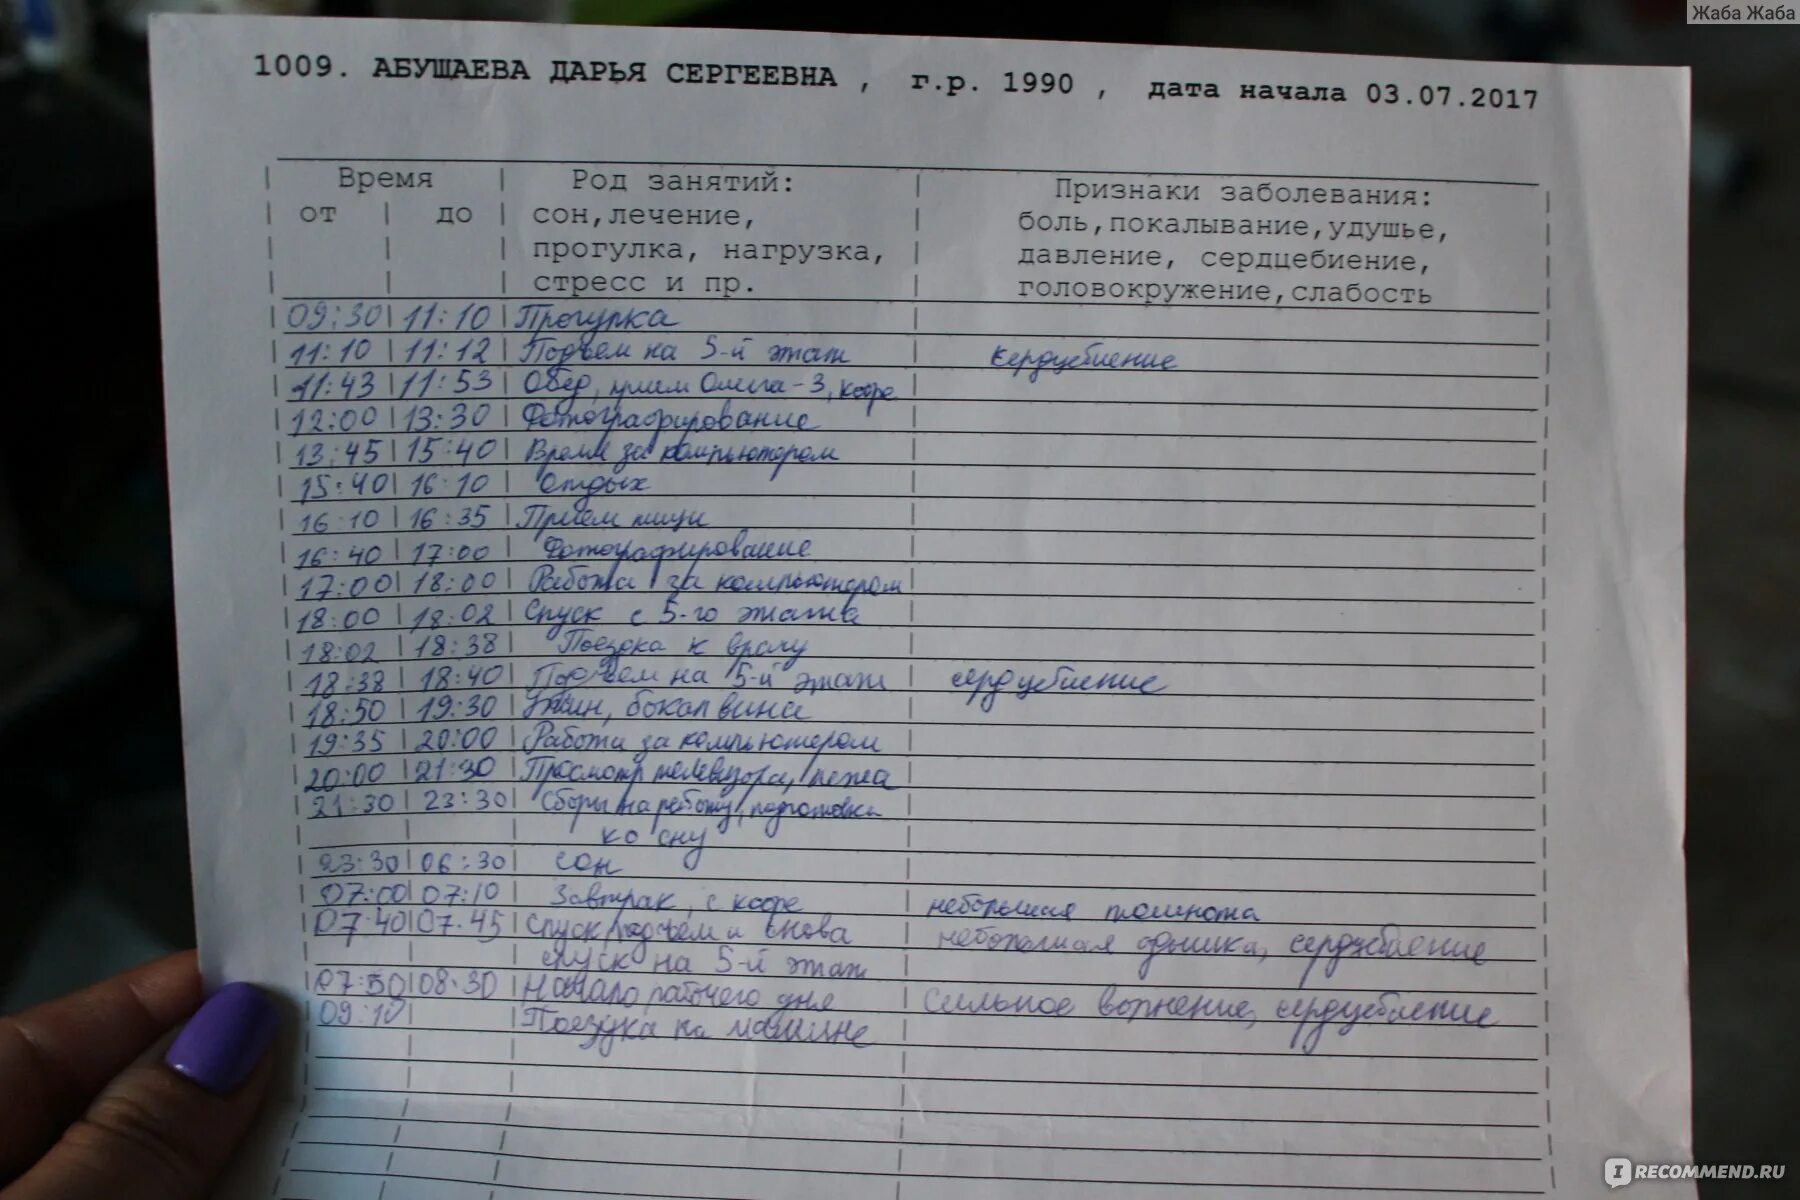 Жаба Жаба
1009. АБУЩАЕВА ДАРЬЯ СЕРГЕЕВНА , г.р. 1990 , дата начала 03.07.2017
Время Род занятий: Признаки заболевания:
от до сон,лечение, боль,покалывание,удушье,
прогулка, нагрузка, давление, сердцебиение,
стресс и пр. головокружение,слабость
09:30 11:10 Прогулка
11:10 11:12 Подъем на 5-й этаж сердцебиение
11:43 11:53 Обед, прием Омега-3, кофе
12:00 13:30 Фотографирование
13:45 15:40 Время за компьютером
15:40 16:10 Отдых
16:10 16:35 Прием пищи
16:40 17:00 Фотографирование
17:00 18:00 Работа за компьютером
18:00 18:02 Спуск с 5-го этажа
18:02 18:38 Поездка к врачу
18:38 18:40 Подъем на 5-й этаж сердцебиение
18:50 19:30 Ужин, бокал вина
19:35 20:00 Работа за компьютером
20:00 21:30 Просмотр телевизора, лежа
21:30 23:30 Сборы на работу, подготовка
ко сну
23:30 06:30 сон
07:00 07:10 Завтрак, с кофе небольшая тошнота
07:40 07:45 Спуск, подъем и снова небольшая одышка, сердцебиение
спуск на 5-й этаж
07:50 08:30 Начало рабочего дня сильное волнение, сердцебиение
09:10 Поездка на машине
IRECOMMEND.RU